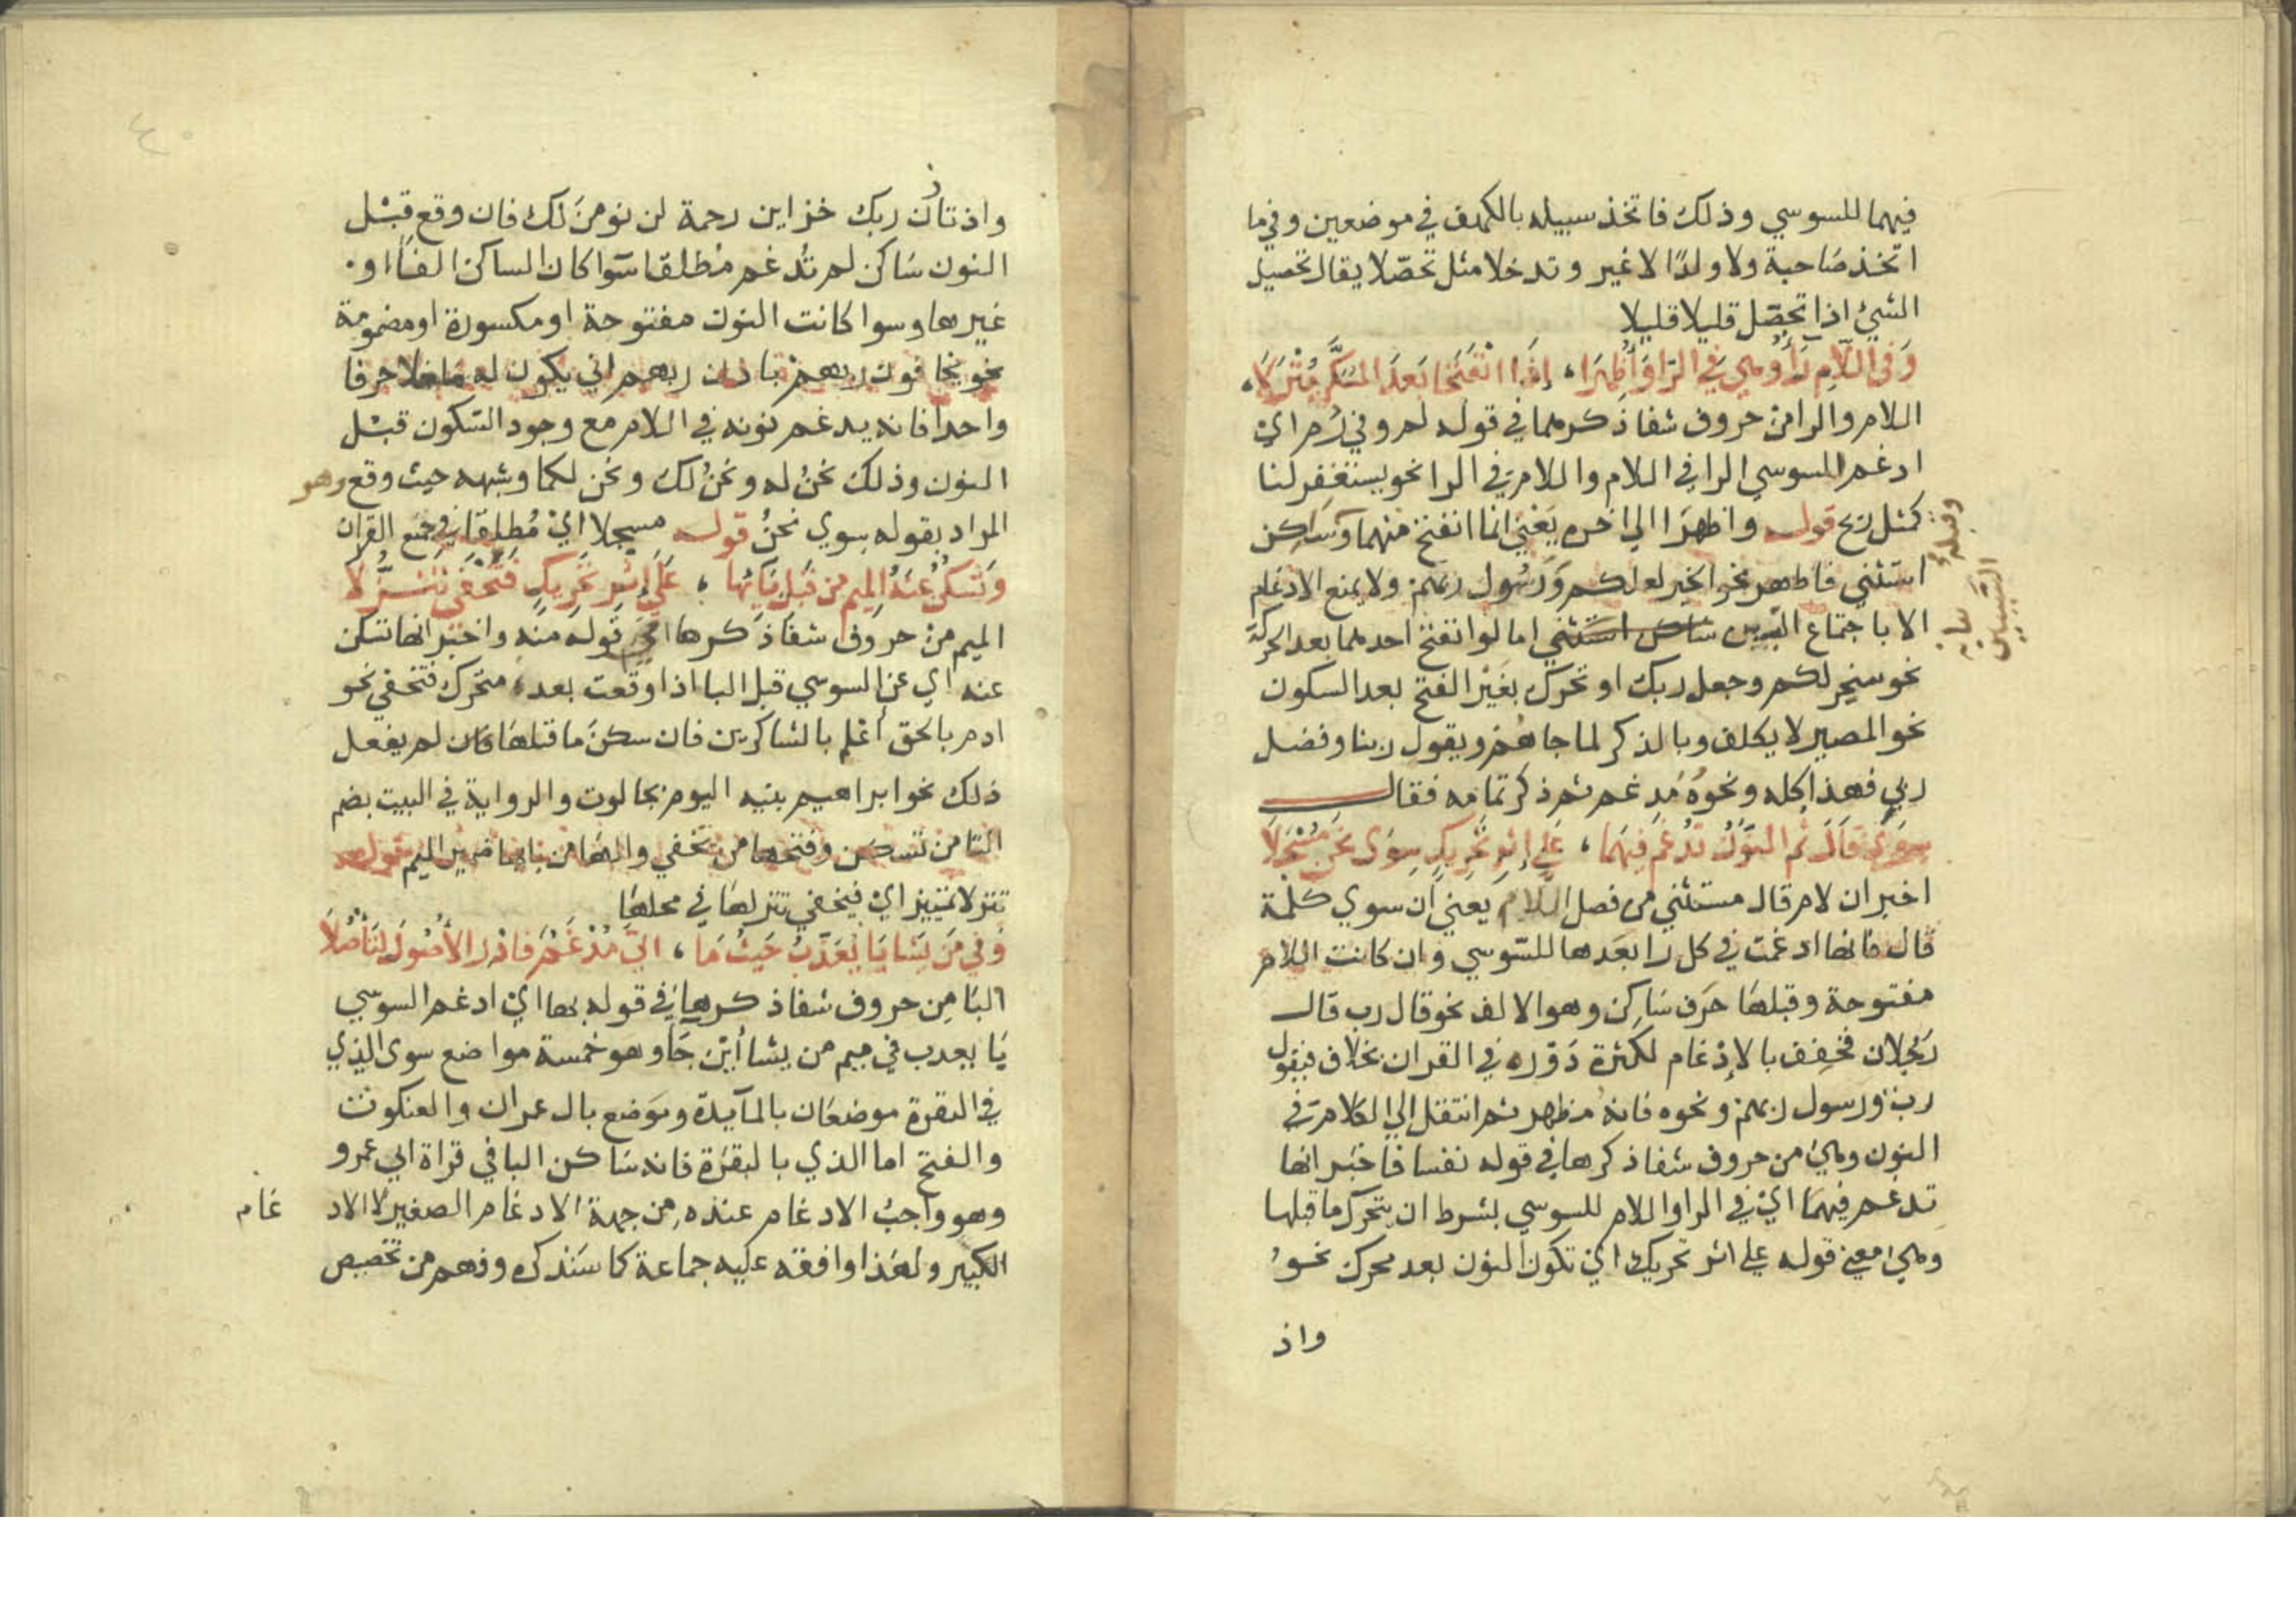 فيهما للسوسي وذلك فاتخذ سبيله بالكهف في موضعين وفي ما
اتخذ صاحبة ولا ولدًا لا غير وتدخلا مثل تحصّلا يقال تحصيل
الشيء اذا تحصّل قليلا قليلا
وَفي اللّامِ رَاءٌ وهي في الرّا وَأُظْهِرَا ، إذَا انْفَتَحَا بَعدَ المُسَكَّنِ مُنْزَلَا ،
اللام والرا من حروف شفا ذكرهما في قوله لم وفي رُم اي
ادغم السوسي الرا في اللام واللام في الرا نحو يستغفر لنا
كمثل ريح قوله واظهرَا الي اخره يَعْني انما انفتح منهما وَسَاكِن
استثني فاظهر نحو الخير لعلكم وَرَسُول ربهم ولا يمنع الادغام
الا باجتماع السَّبَبين ساكن استثني اما لو انفتح احدهما بعد الحركة
وقبلهُ
السَّبَبين
نحو سخر لكم وجعل ربك او تحرك بغَيْر الفتح بعد السكون
نحو المصير لا يكلف وبالذكر لما جاهُمْ ويقول ربنا وفضل
ربي فهذا كله ونحوهُ مُدغم ثم ذكر تمامه فقال
سِوَى قَالَ ثُم النُّونُ تُدْغَمُ فِيهِمَا ، عَلي إثْرِ تَحْرِيكٍ سِوَى نَحنُ مُسْجَلَا
اخبر ان لام قال مستثني من فصل اللام يَعني ان سوي كلمة
قال فانها ادغمت في كل را بعَدها للسّوسي وان كانت اللام
مفتوحة وقبلهَا حَرف سَاكِن وهو الالف نحو قال رب قال
رَجُلان فخفِف بالإدْغام لكثرة دَوْره في القران بخلاف فيقول
رب ورسول ربهم ونحوه فانهُ مظهر ثم انتقل الي الكلام في
النون وهي من حروف شفا ذكرها في قوله نفسا فاخبَر انها
تدغم فيهمَا ايْ في الرا واللام للسوسي بشرط ان يتحرك ما قبلها
وهي معني قوله علي اثر تحريك اي تكون النون بعد محرك نحوُ
واذ
٤٠
واذ تاذن ربك خزاين رحمة لن نومنَ لك فان وقع قبْل
النون سَاكن لم تُدغم مُطلقا سَوا كان الساكن الفًا او
غيرها وسوا كانت النون مفتوحة او مكسورة او مضمومة
نحو يخافون ربهمْ باذن ربهم اني يكون له ماخلا حرفا
واحدا فانه يدغم نونه في اللام مع وجود السّكون قبْل
النون وذلك نحنُ له ونحنُ لك ونحن لكما وشبهه حيث وقع وهو
المراد بقوله سِوي نحنُ قوله مسجلا ايْ مُطلقا في جميع القران
وَتُسْكنُ عَنهُ المِيم من قَبل بَائِهَا ، عَلَي إثْرِ تَحْرِيكٍ فَتَخْفَي تَنَزُّلَا
الميم منْ حروف شفا ذكرها في قوله منه واخبر انها تسكن
عنه اي عن السوسي قبل البا اذا وقعت بعد متحرك فتخفي نحو
ادم بالحق أعْلم بالشاكرين فان سكنَ ما قبلهَا فان لم يفعل
ذلك نحو ابراهيم بنيه اليوم بجالوت والرواية في البيت بضم
التا من تُسكن وفتحها من تخفي والها من بايها ضمير الميم قوله
تنزلا تمييز ايْ فيخفي تنزلهَا في محلهَا
وَفي مَن يَشَا بَا يُعَذِّبُ حَيثُ مَا ، اتَي مُدْغَمٌ فَادْرِ الأُصُولَ لِتَأْصُلَا
البَا مِن حروف شفا ذكرها في قوله بها ايْ ادغم السوسي
بَا يعدب في ميم من يشا أيْنَ جَا وهو خمسة مواضع سوى الذي
في البقرة موضعَان بالمآيدة ومَوضع بال عمران والعنكوت
والفتح اما الذي بالبقَرة فانه سَاكن البا في قراة ابي عمرو
وهو واجبُ الادغام عنده من جهة الادغام الصغير لا الادغام
الكبير ولهَذا وافقه عليه جماعة كما سَنذكره وفهم من تخصيص